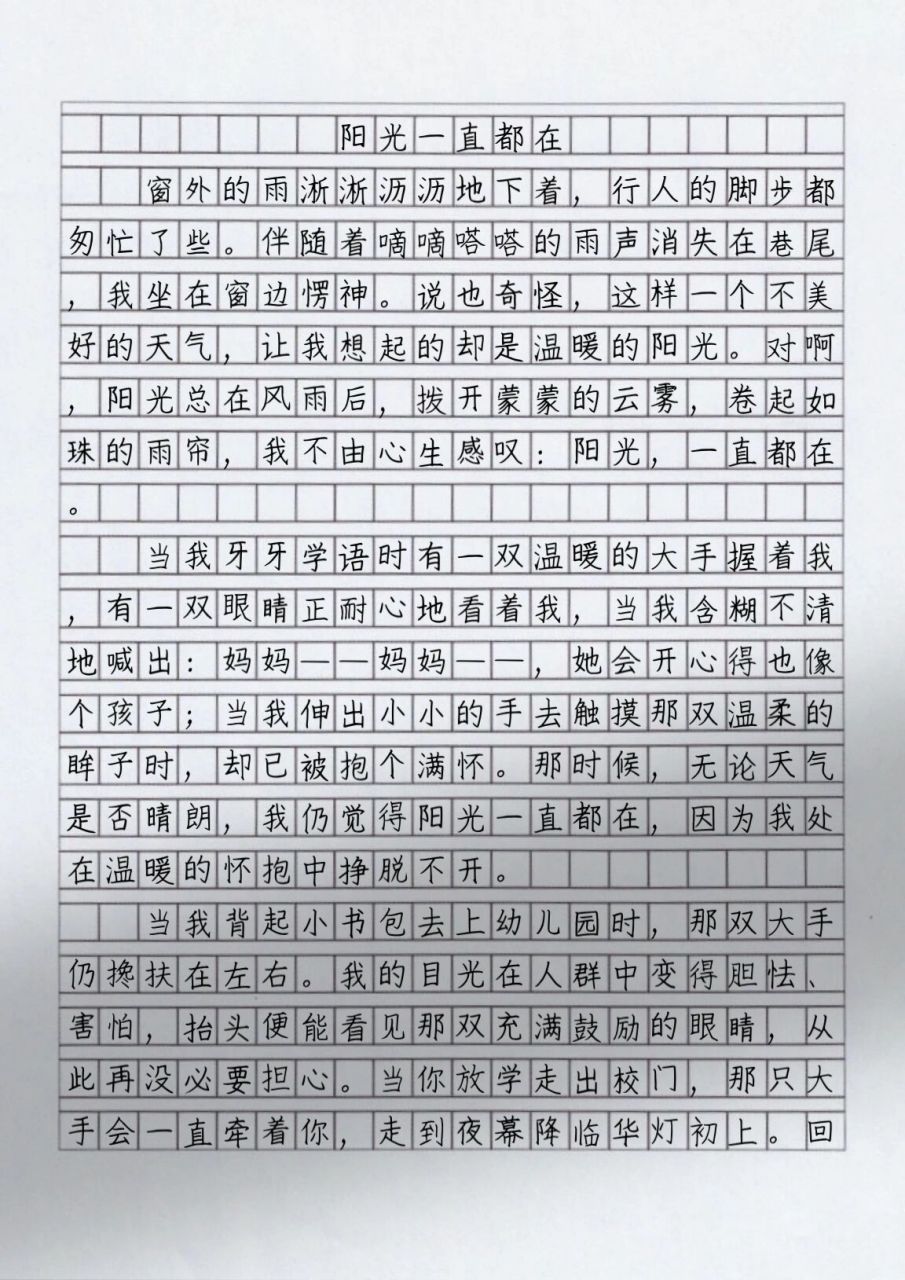 阳光一直都在
窗外的雨淅淅沥沥地下着，行人的脚步都
匆忙了些。伴随着嘀嘀嗒嗒的雨声消失在巷尾
，我坐在窗边愣神。说也奇怪，这样一个不美
好的天气，让我想起的却是温暖的阳光。对啊
，阳光总在风雨后，拨开蒙蒙的云雾，卷起如
珠的雨帘，我不由心生感叹：阳光，一直都在
。
当我牙牙学语时有一双温暖的大手握着我
，有一双眼睛正耐心地看着我，当我含糊不清
地喊出：妈妈——妈妈——，她会开心得也像
个孩子；当我伸出小小的手去触摸那双温柔的
眸子时，却已被抱个满怀。那时候，无论天气
是否晴朗，我仍觉得阳光一直都在，因为我处
在温暖的怀抱中挣脱不开。
当我背起小书包去上幼儿园时，那双大手
仍搀扶在左右。我的目光在人群中变得胆怯、
害怕，抬头便能看见那双充满鼓励的眼睛，从
此再没必要担心。当你放学走出校门，那只大
手会一直牵着你，走到夜幕降临华灯初上。回